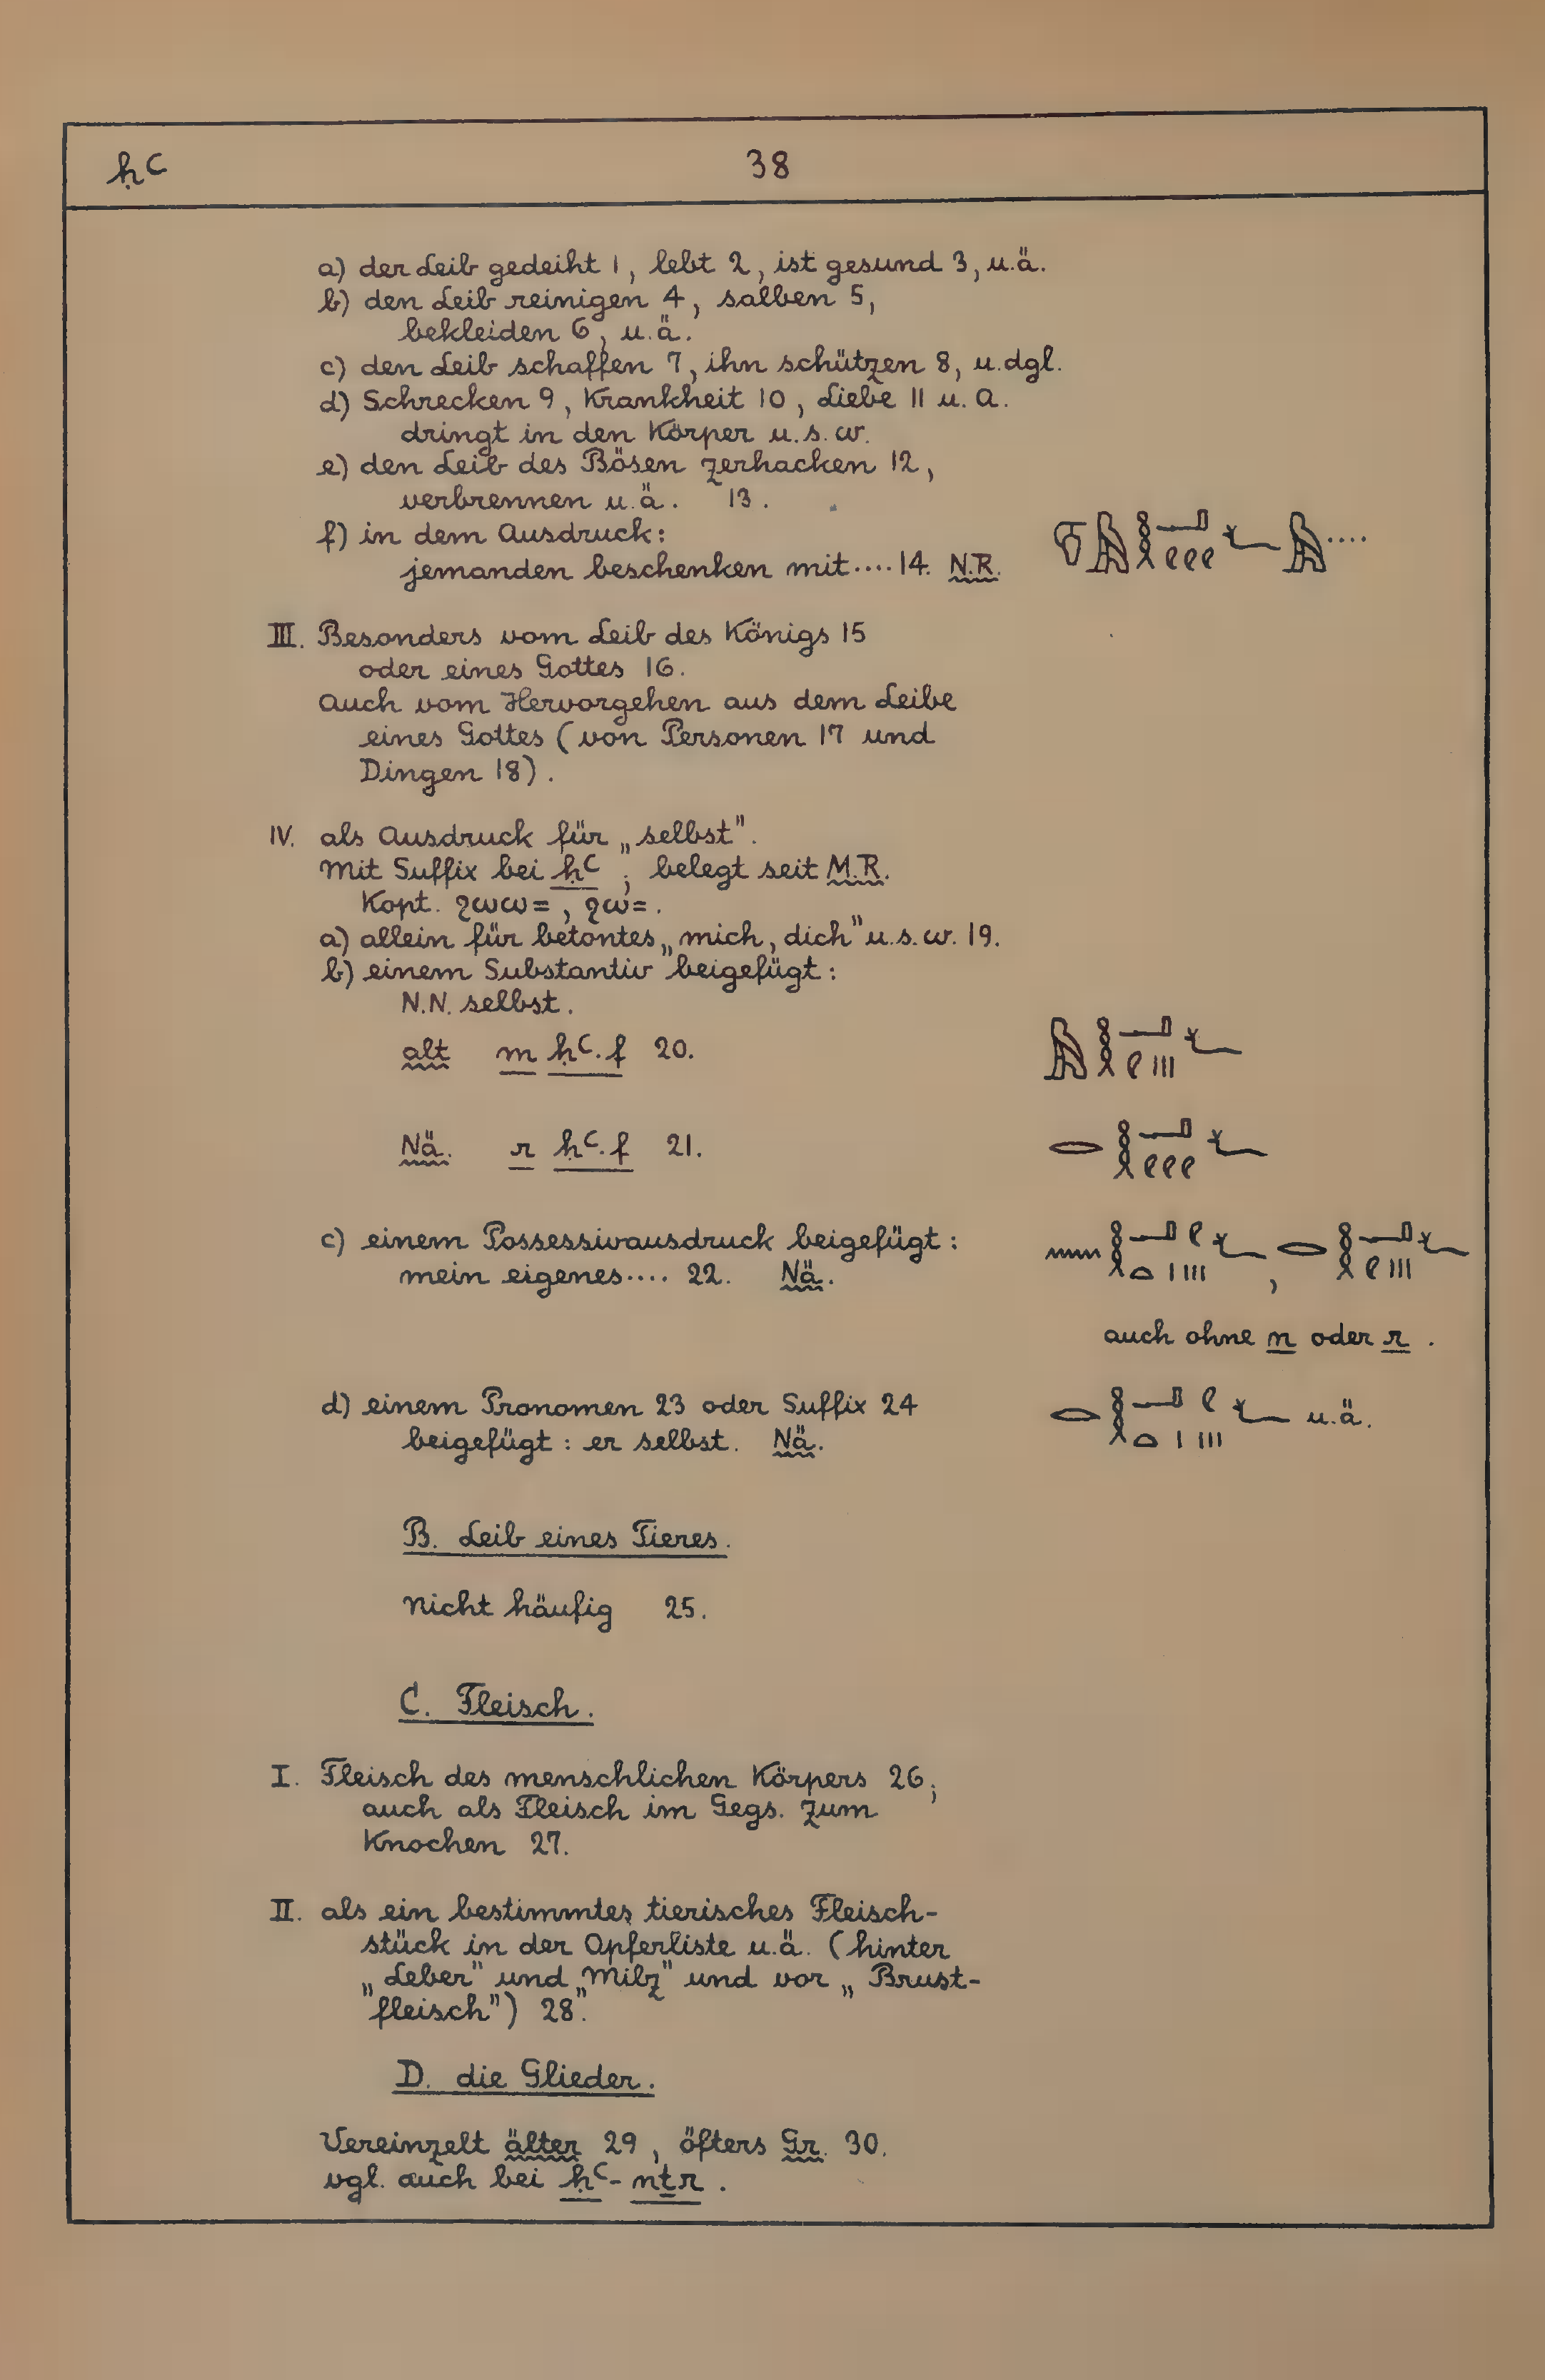 ḥꜥ 38
a) der Leib gedeiht 1, lebt 2, ist gesund 3, u.ä.
b) den Leib reinigen 4, salben 5,
bekleiden 6, u.ä.
c) den Leib schaffen 7, ihn schützen 8, u.dgl.
d) Schrecken 9, Krankheit 10, Liebe 11 u. a.
dringt in den Körper u.s.w.
e) den Leib des Bösen zerhacken 12,
verbrennen u.ä. 13.
f) in dem Ausdruck:
jemanden beschenken mit .... 14. N.R.
III. Besonders vom Leib des Königs 15
oder eines Gottes 16.
Auch vom Hervorgehen aus dem Leibe
eines Gottes (von Personen 17 und
Dingen 18).
IV. als Ausdruck für „selbst".
Mit Suffix bei ḥꜥ; belegt seit M.R.
Kopt. ϩⲱⲱ=, ϩⲱ=.
a) allein für betontes „mich, dich" u.s.w. 19.
b) einem Substantiv beigefügt:
N.N. selbst.
alt m ḥꜥ.f 20.
Nä. r ḥꜥ.f 21.
c) einem Possessivausdruck beigefügt:
mein eigenes .... 22. Nä.
auch ohne n oder r.
d) einem Pronomen 23 oder Suffix 24 u.ä.
beigefügt: er selbst. Nä.
B. Leib eines Tieres.
Nicht häufig 25.
C. Fleisch.
I. Fleisch des menschlichen Körpers 26;
auch als Fleisch im Gegs. zum
Knochen 27.
II. als ein bestimmtes tierisches Fleisch-
stück in der Opferliste u.ä. (hinter
„Leber" und „Milz" und vor „Brust-
fleisch") 28.
D. die Glieder.
Vereinzelt älter 29, öfters Gr. 30.
vgl. auch bei ḥꜥ-nṯr.